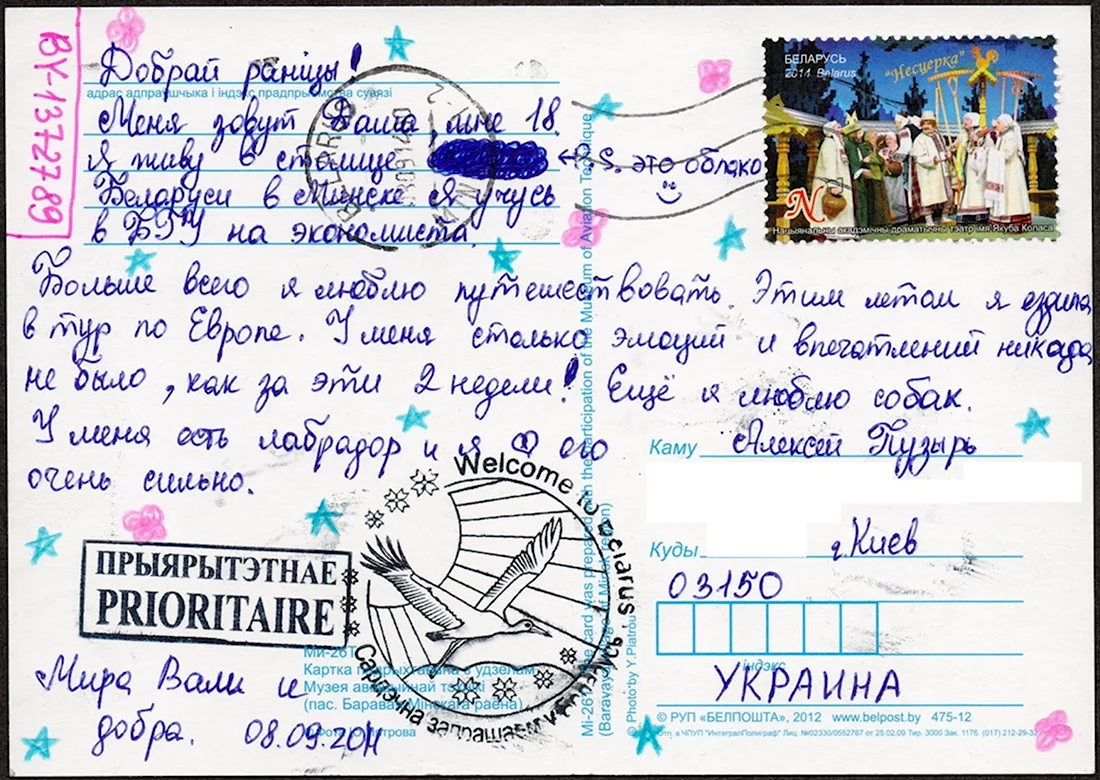 BY-1372789
Добрай раніцы!
адрас адпраўшчыка і індэкс прадпрыемства сувязі
Меня зовут Даша, мне 18.
Я живу в столице ← P.S. это облако
Беларуси в Минске. Я учусь
в БГУ на экономиста.
Больше всего я люблю путешествовать. Этим летом я ездила
в тур по Европе. У меня столько эмоций и впечатлений никогда
не было, как за эти 2 недели! Ещё я люблю собак.
У меня есть лабрадор и я ♡ его
очень сильно.
Мира Вам и
добра. 08.09.2014
БЕЛАРУСЬ
2014 Belarus
"Несцерка"
N
Нацыянальны акадэмічны драматычны тэатр імя Якуба Коласа
Каму Алексей Пузырь
Куды г. Киев
03150
індэкс
УКРАИНА
ПРЫЯРЫТЭТНАЕ
PRIORITAIRE
Welcome to Belarus
Сардэчна запрашаем у
Ми-26Т
Картка падрыхтавана з удзелам
Музея авіяцыйнай тэхнікі
(пас. Баравая Мінскага раёна)
Mi-26T The card was prepared with the participation of the Museum of Aviation Technique
(Baravaya, of Minsk region)
© Photo by Y.Piatrou
© РУП «БЕЛПОШТА», 2012 www.belpost.by 475-12
в ЧПУП "ИнтегралПолиграф" Лиц. №02330/0552767 от 25.02.09 Тир. 3000 Зак. 1176. (017) 212-29-32